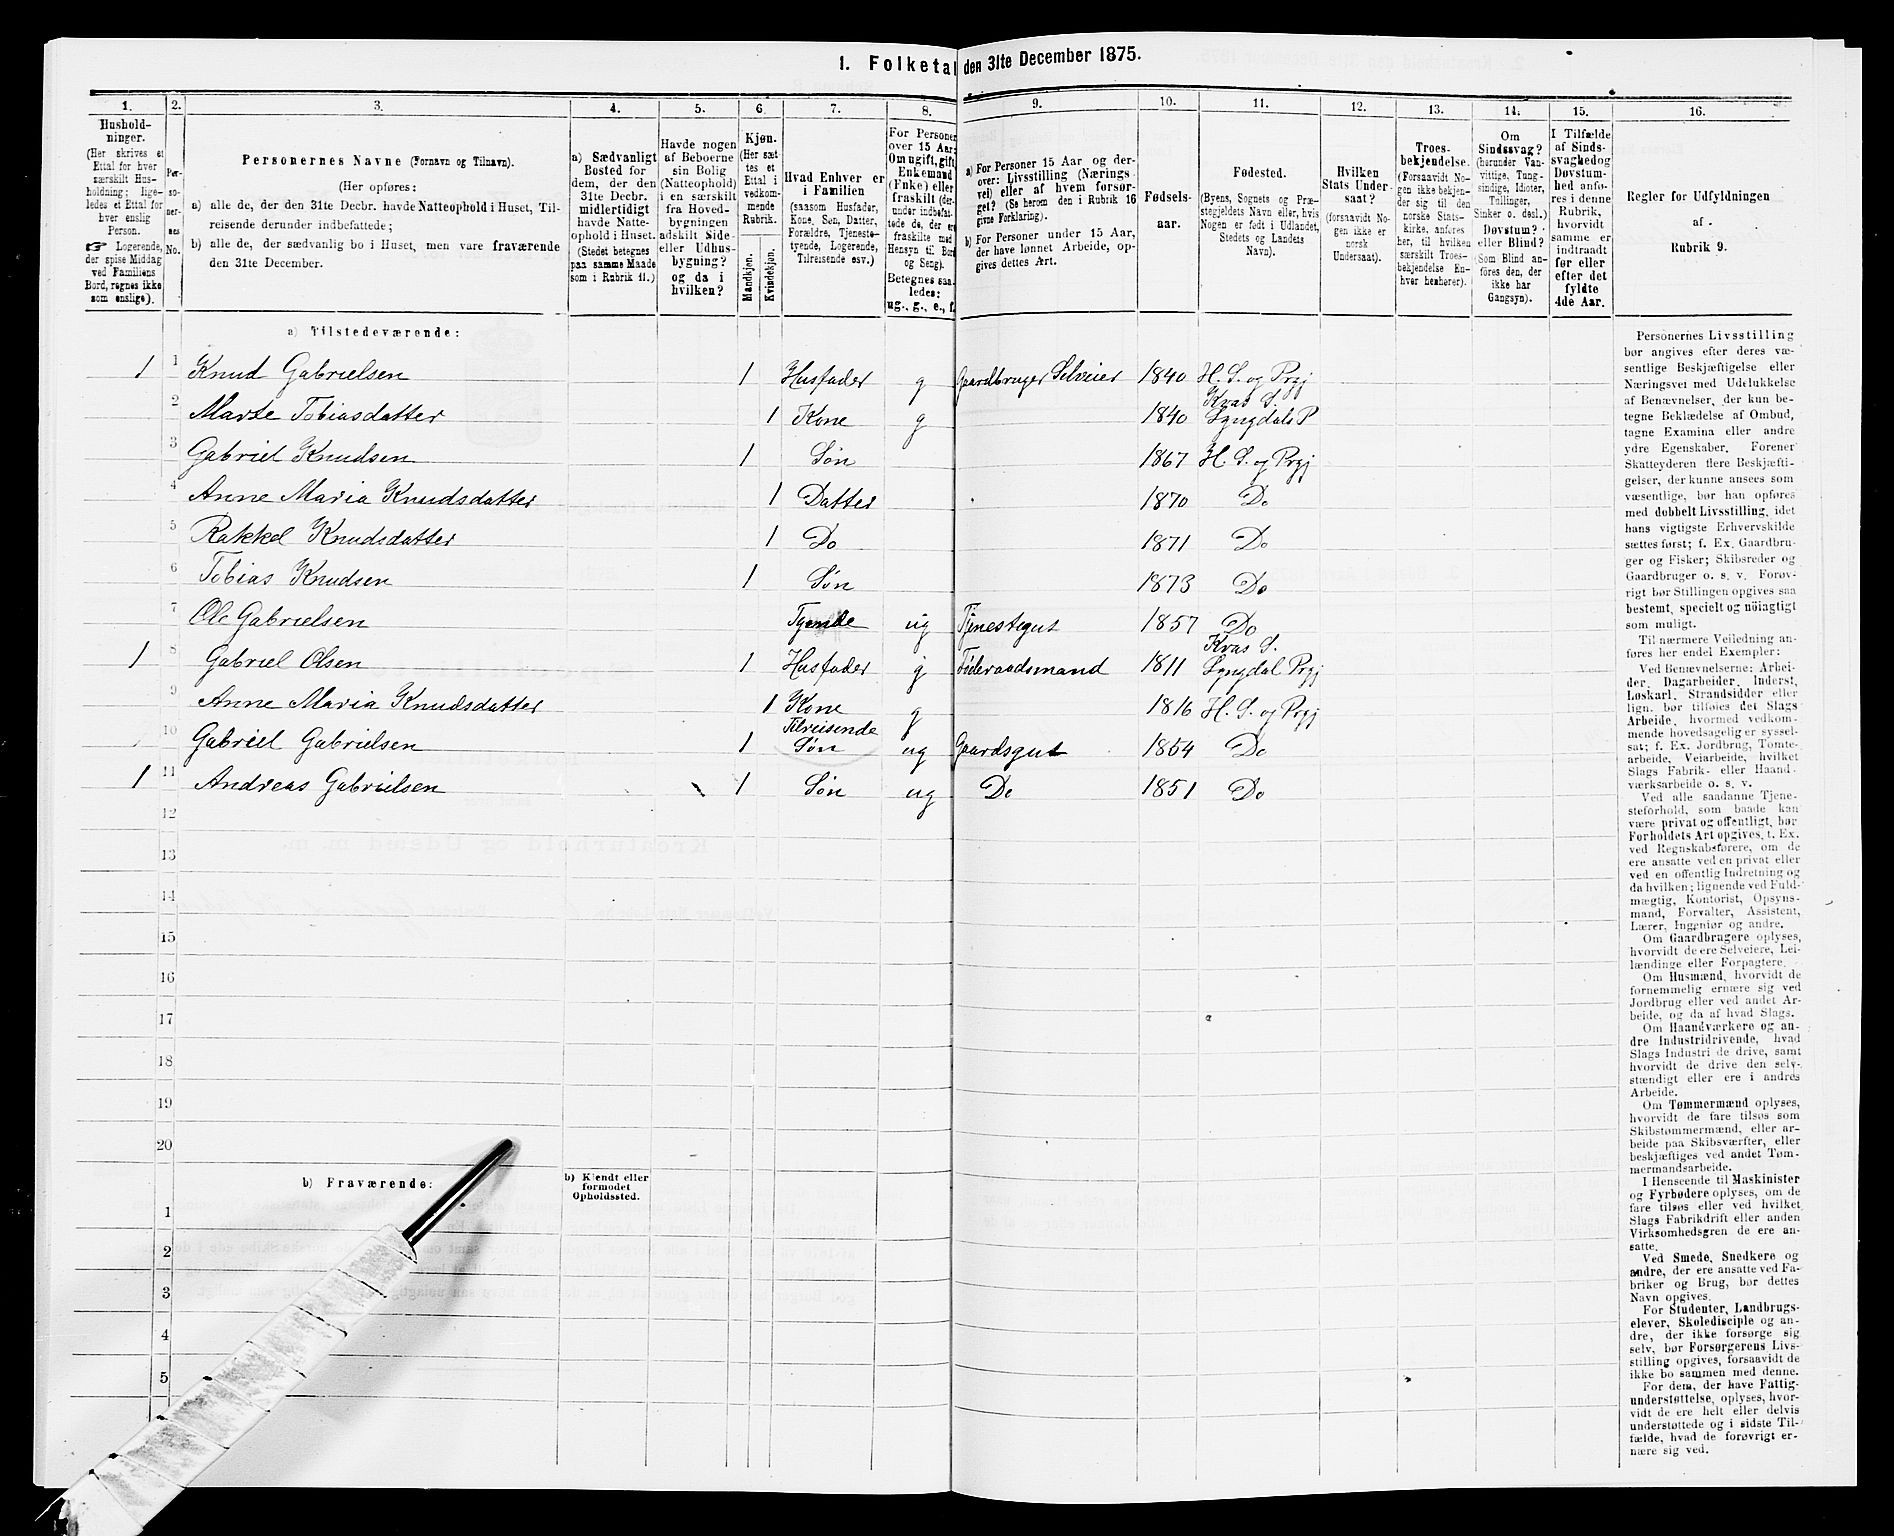 1. Folketal den 31te December 1875.
1. 2. 3. 4. 5. 6. 7. 8. 9. 10. 11. 12. 13. 14. 15. 16.
Hushold-
ninger.
(Her skrives et
Ettal for hver
særskilt Hus-
holdning; lige-
ledes et Ettal for
hver enslig
Person.
☞ Logerende,
der spise Middag
ved Familiens
Bord, regnes ikke
som enslige).
Per-
so-
ner-
nes
No.
Personernes Navne (Fornavn og Tilnavn).
(Her opføres:
a) alle de, der den 31te Decbr. havde Natteophold i Huset, Til-
reisende derunder indbefattede;
b) alle de, der sædvanlig bo i Huset, men vare fraværende
den 31te December.
a) Sædvanligt
Bosted for
dem, der den
31te Decbr.
midlertidigt
havde Natte-
ophold i Huset.
(Stedet betegnes
paa samme Maade
som i Rubrik 11.)
Havde nogen
af Beboerne
sin Bolig
(Natteophold)
i en særskilt
fra Hoved-
bygningen
adskilt Side-
eller Udhus-
bygning?
og da i
hvilken?
Kjøn.
(Her sæt-
tes et
Ettal i
vedkom-
mende
Rubrik.
Mandkjøn.
Kvindekjøn.
Hvad Enhver er
i Familien
(saasom Husfader,
Kone, Søn, Datter,
Forældre, Tjeneste-
tyende, Logerende,
Tilreisende osv.)
For Personer
over 15 Aar:
Om ugift, gift,
Enkemand
(Enke) eller
fraskilt (der-
under indbefat-
tede de, der ere
fraskilte med
Hensyn til Bord
og Seng).
Betegnes saa-
ledes:
ug., g., e., f.
a) For Personer 15 Aar og der-
over: Livsstilling (Nærings-
vei) eller af hvem forsør-
get? (Se herom den i Rubrik 16
givne Forklaring).
b) For Personer under 15 Aar,
der have lønnet Arbeide, op-
gives dettes Art.
Fødsels-
aar.
Fødested.
(Byens, Sognets og Præ-
stegjeldets Navn eller, hvis
Nogen er født i Udlandet,
Stedets og Landets
Navn).
Hvilken
Stats Under-
saat?
(forsaavidt No-
gen ikke er
norsk
Undersaat).
Troes-
bekjendelse.
(Forsaavidt No-
gen ikke bekjen-
der sig til den
norske Stats-
kirke, anføres
her, til hvilken
særskilt Troes-
bekjendelse En-
hver henhører).
Om
Sindssvag?
(herunder Van-
vittige, Tung-
sindige, Idioter,
Tullinger,
Sinker o. desl.)
Døvstum?
eller Blind?
(Som Blind an-
føres den, der
ikke har
Gangsyn).
I Tilfælde
af Sinds-
svaghed og
Døvstum-
hed anfø-
res i denne
Rubrik,
hvorvidt
samme er
indtraadt
før eller
efter det
fyldte
4de Aar.
Regler for Udfyldningen
af
Rubrik 9.
a) Tilstedeværende:
1 1 Knud Gabrielsen 1 Husfader g Gaardbruger Selveier 1840 H. S. og Prgj
2 Marte Tobiasdatter 1 Kone g 1840 Kvas S. Lyngdals P
3 Gabriel Knudsen 1 Søn 1867 H. S. og Prgj
4 Anne Maria Knudsdatter 1 Datter 1870 Do
5 Rakkel Knudsdatter 1 Do 1871 Do
6 Tobias Knudsen 1 Søn 1873 Do
7 Ole Gabrielsen Tyende ug Tjenestegut 1857 Do
1 8 Gabriel Olsen 1 Husfader g Føderaadsmand 1811 Kvas S. Lyngdal Prgj
9 Anne Maria Knudsdatter 1 Kone g 1816 H. S. og Prgj
10 Gabriel Gabrielsen 1 Tilreisende Søn ug Gaardsgut 1854 Do
1 11 Andreas Gabrielsen 1 Søn ug Do 1851 Do
12
13
14
15
16
17
18
19
20
b) Fraværende:
b) Kjendt eller
formodet
Opholdssted.
1
2
3
4
5
Personernes Livsstilling
bør angives efter deres væ-
sentlige Beskjæftigelse eller
Næringsvei med Udelukkelse
af Benævnelser, der kun be-
tegne Beklædelse af Ombud,
tagne Examina eller andre
ydre Egenskaber. Forener
Skatteyderen flere Beskjæfti-
gelser, der kunne ansees som
væsentlige, bør han opføres
med dobbelt Livsstilling, idet
hans vigtigste Erhvervskilde
sættes først; f. Ex. Gaardbru-
ger og Fisker; Skibsreder og
Gaardbruger o. s. v. Forøv-
rigt bør Stillingen opgives saa
bestemt, specielt og nöiagtigt
som muligt.
Til nærmere Veiledning an-
føres her endel Exempler:
Ved Benævnelserne: Arbei-
der, Dagarbeider, Inderst,
Løskarl, Strandsidder eller
lign. bør tilføies det Slags
Arbeide, hvormed vedkom-
mende hovedsagelig er syssel-
sat; f. Ex. Jordbrug, Tomte-
arbeide, Veiarbeide, hvilket
Slags Fabrik- eller Haand-
værksarbeide o. s. v.
Ved alle saadanne Tjene-
steforhold, som baade kan
være privat og offentligt, bør
Forholdets Art opgives, t. Ex.
ved Regnskabsførere, om de
ere ansatte ved en privat eller
ved en offentlig Indretning og
da hvilken; lignende ved Fuld-
mægtig, Kontorist, Opsyns-
mand, Forvalter, Assistent,
Lærer, Ingeniør og andre.
Om Gaardbrugere oplyses,
hvorvidt de ere Selveiere, Lei-
lændinge eller Forpagtere.
Om Husmænd, hvorvidt de
fornemmelig ernære sig ved
Jordbrug eller ved andet Ar-
beide, og da af hvad Slags.
Om Haandværkere og an-
dre Industridrivende, hvad
Slags Industri de drive, samt
hvorvidt de drive den selv-
stændigt eller ere i andres
Arbeide.
Om Tømmermænd oplyses,
hvorvidt de fare tilsøs som
Skibstømmermænd, eller ar-
beide paa Skibsværfter, eller
beskjæftiges ved andet Tøm-
mermandsarbeide.
I Henseende til Maskinister
og Fyrbødere oplyses, om de
fare tilsøs eller ved hvilket
Slags Fabrikdrift eller anden
Virksomhedsgren de ere an-
satte.
Ved Smede, Snedkere og
andre, der ere ansatte ved Fa-
briker og Brug, bør dettes
Navn opgives.
For Studenter, Landbrugs-
elever, Skoledisciple og an-
dre, der ikke forsørge sig
selv, bør Forsørgerens Livs-
stilling opgives, forsaavidt de
ikke bo sammen med denne.
For dem, der have Fattig-
understøttelse, oplyses, hvor-
vidt de ere helt eller delvis
understøttede og i sidste Til-
fælde, hvad de forøvrigt er-
nære sig ved.